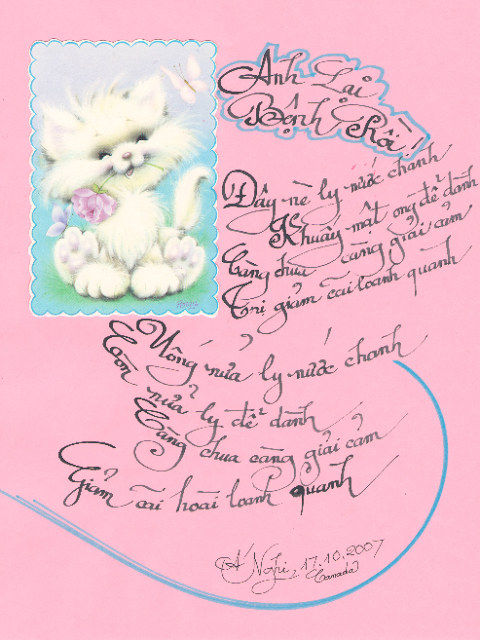 Anh Lại
Bệnh Rồi!
Đây nè ly nước chanh
Khuấy mật ong để dành
Càng chua càng giải cảm
Trị giảm cãi loanh quanh
Uống nửa ly nước chanh
Còn nửa ly để dành
Càng chua càng giải cảm
Giảm cãi hoài loanh quanh
17.10.2007
Canada